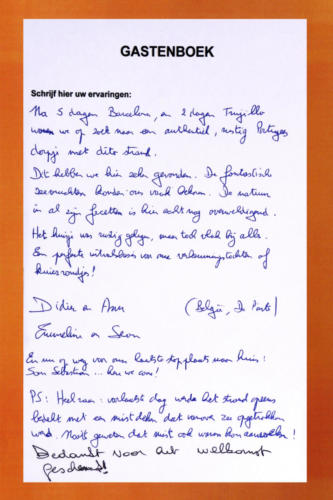 GASTENBOEK
Schrijf hier uw ervaringen:
Na 5 dagen Barcelona, en 2 dagen Trujillo
waren we op zoek naar een authentiek, rustig Portugees
dorpje met dito strand.
Dit hebben we hier zeker gevonden. De fantastische
zeevruchten konden ons
De natuur
in al zijn facetten is hier echt nog overweldigend.
Het huisje was rustig gelegen, maar toch vlak bij alles.
Een perfecte uitvalsbasis voor onze verkenningstochten of
huisrondjes!
Didier en Ann (België, De Panne)
Emmeline en Seon
En nu op weg voor onze laatste stopplaats naar huis:
San Sebastian ... here we come!
PS: Heel raar: verlaatste dag werd het strand opeens
bedekt met een mistdeken dat vanover zee opgetrokken
werd. Nooit geweten dat mist ook warm kon aanvoelen!
Bedankt voor het welkomst
geschenk!